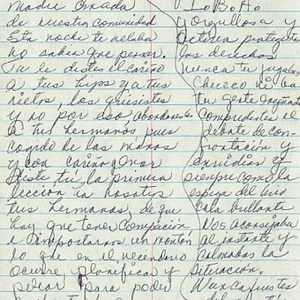 Madre Criada
de nuestra comunidad
Esta noche te velaba
no sabia que pensar.
Tu le distes el cariño
a tus hijos y a tus
nietos, los quisistes
y no por eso abandonastes
a tus hermanos pues
cogido de las manos
y con cariño
Diste tú la primera
lección a nosotros
tus hermanos, de que
hay que tener compasión
e importarnos un montón
lo que en el vecindario
ocurre, planificar y
pelear para poder
LoBoHo
y orgullosa y
protegiste
los derechos
nunca te
Chueco ni
tu gesto
Comprendistes el
debate de con
frontación y
envidias el
siempre como la
espiga del trigo
Cala brillante
Nos aconsejaba
al instante y
calmabas la
situación.
Nunca fuistes